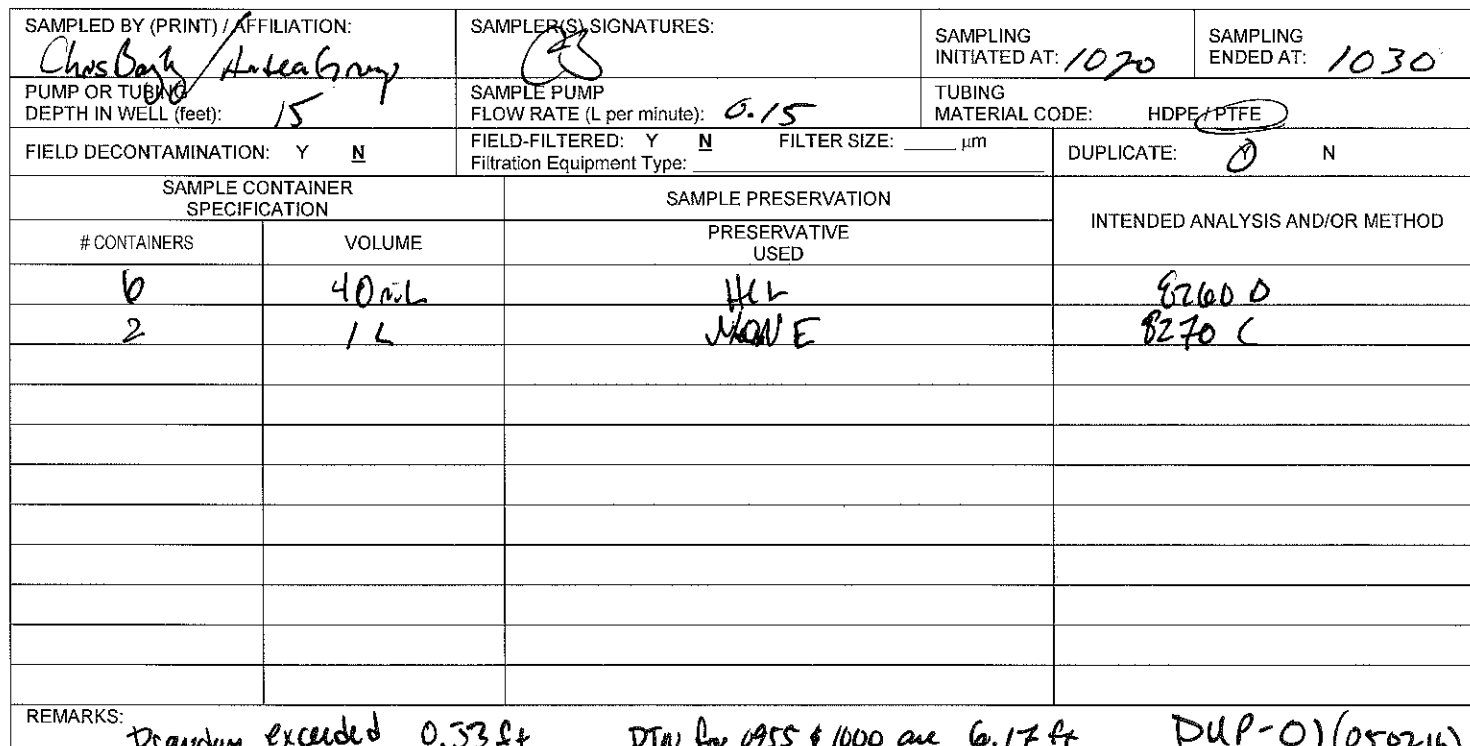 SAMPLED BY (PRINT) / AFFILIATION:
Chris / Antea Group
SAMPLER(S) SIGNATURES:
SAMPLING
INITIATED AT: 1020
SAMPLING
ENDED AT: 1030
PUMP OR TUBING
DEPTH IN WELL (feet): 15
SAMPLE PUMP
FLOW RATE (L per minute): 0.15
TUBING
MATERIAL CODE: HDPE / PTFE
FIELD DECONTAMINATION: Y N
FIELD-FILTERED: Y N FILTER SIZE: _____ μm
Filtration Equipment Type:
DUPLICATE: Y N
SAMPLE CONTAINER
SPECIFICATION
SAMPLE PRESERVATION
INTENDED ANALYSIS AND/OR METHOD
# CONTAINERS
VOLUME
PRESERVATIVE
USED
6 40 mL HCL 8260 D
2 1 L NONE 8270 C
REMARKS:
Drawdown exceeded 0.33 ft DTW for 0955 & 1000 are 6.17 ft DUP-01(050216)